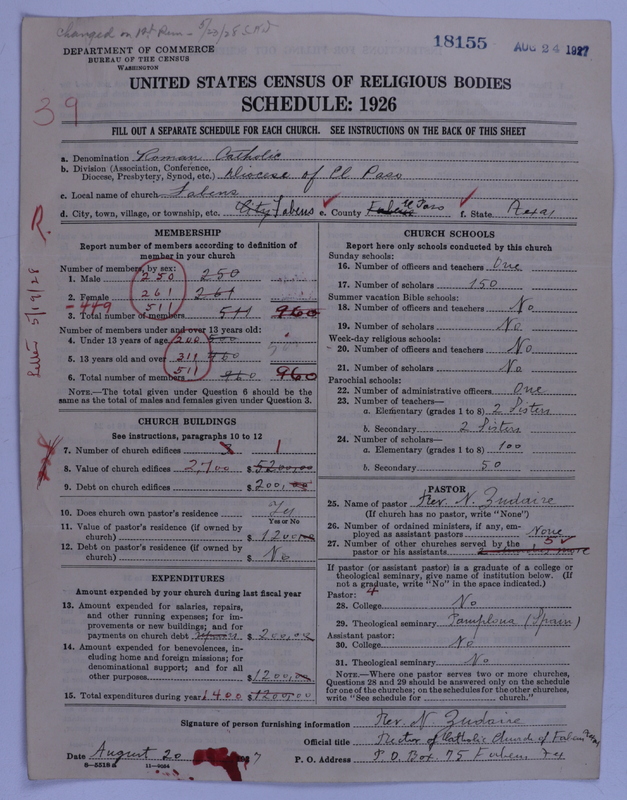 Changed on 1st Run - 5/23/28 S.K.J.
18155
AUG 24 1927
DEPARTMENT OF COMMERCE
BUREAU OF THE CENSUS
WASHINGTON
UNITED STATES CENSUS OF RELIGIOUS BODIES
SCHEDULE: 1926
39
FILL OUT A SEPARATE SCHEDULE FOR EACH CHURCH. SEE INSTRUCTIONS ON THE BACK OF THIS SHEET
a. Denomination Roman Catholic
b. Division (Association, Conference,
Diocese, Presbytery, Synod, etc.) Diocese of El Paso
c. Local name of church Fabens
d. City, town, village, or township, etc. City Fabens e. County El Paso f. State Texas
R.
Letter 5/19/28
MEMBERSHIP
Report number of members according to definition of
member in your church
Number of members, by sex:
1. Male 250 250
2. Female 261 261
-449
3. Total number of members 511 511 960
Number of members under and over 13 years old:
4. Under 13 years of age 200 500
5. 13 years old and over 311 460
6. Total number of members 511 960 960
NOTE.—The total given under Question 6 should be the
same as the total of males and females given under Question 3.
CHURCH BUILDINGS
See instructions, paragraphs 10 to 12
7. Number of church edifices 3 1
8. Value of church edifices 2,700 $ 5200,00
9. Debt on church edifices $ 200,00
10. Does church own pastor's residence? Yes
Yes or No
11. Value of pastor's residence (if owned by
church) $ 1200,00
12. Debt on pastor's residence (if owned by
church) $ No
EXPENDITURES
Amount expended by your church during last fiscal year
13. Amount expended for salaries, repairs,
and other running expenses; for im-
provements or new buildings; and for
payments on church debt $ 200,00
14. Amount expended for benevolences, in-
cluding home and foreign missions; for
denominational support; and for all
other purposes $ 1200,00
15. Total expenditures during year 1400 $ 1200,00
CHURCH SCHOOLS
Report here only schools conducted by this church
Sunday schools:
16. Number of officers and teachers One
17. Number of scholars 150
Summer vacation Bible schools:
18. Number of officers and teachers No
19. Number of scholars No
Week-day religious schools:
20. Number of officers and teachers No
21. Number of scholars No
Parochial schools:
22. Number of administrative officers One
23. Number of teachers—
a. Elementary (grades 1 to 8) 2 Sisters
b. Secondary 2 Sisters
24. Number of scholars—
a. Elementary (grades 1 to 8) 100
b. Secondary 50
PASTOR
25. Name of pastor Rev. N. Zudaire
(If church has no pastor, write "None")
26. Number of ordained ministers, if any, em-
ployed as assistant pastors None
27. Number of other churches served by the 5
pastor or his assistants
If pastor (or assistant pastor) is a graduate of a college or
theological seminary, give name of institution below. (If
not a graduate, write "No" in the space indicated.)
Pastor: 4
28. College No
29. Theological seminary Pamplona (Spain)
Assistant pastor:
30. College No
31. Theological seminary No
NOTE.—Where one pastor serves two or more churches,
Questions 28 and 29 should be answered only on the schedule
for one of the churches; on the schedules for the other churches,
write "See schedule for church."
Signature of person furnishing information Rev. N. Zudaire
Official title Rector of Catholic Church of Fabens Texas
Date August 20 7 P. O. Address P.O. Box. 75 Fabens Tex
8-5518a 11-9064